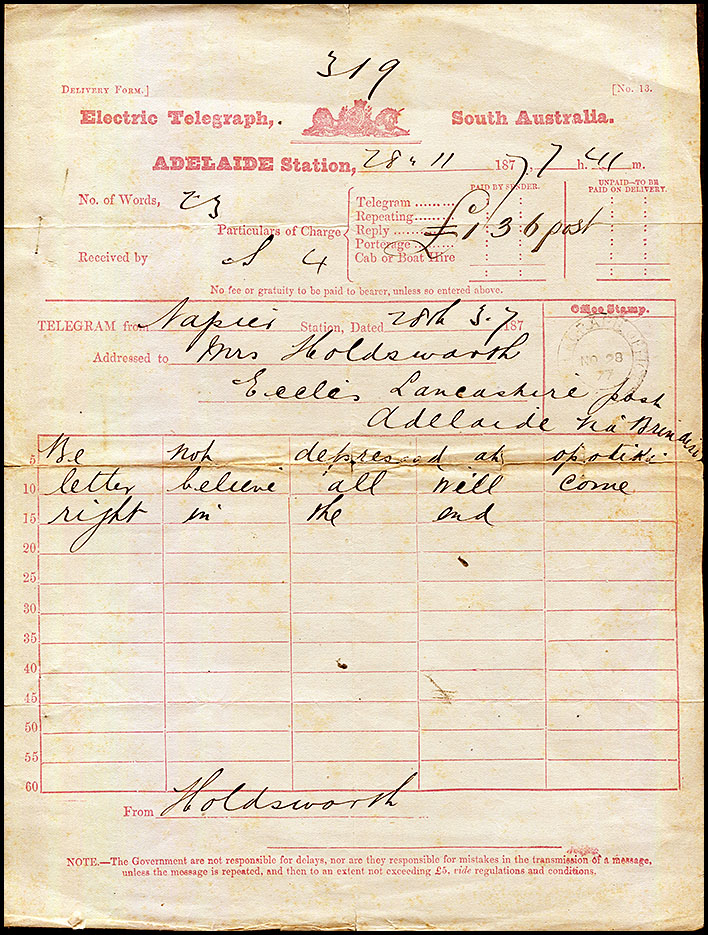 319
DELIVERY FORM.] [No. 13.
Electric Telegraph, South Australia.
ADELAIDE Station, 28 " 11 187 7, 7 h. 41 m.
No. of Words, 23
Particulars of Charge
Telegram
Repeating
Reply
Porterage
Cab or Boat Hire
PAID BY SENDER.
£1 3 6 post
UNPAID—TO BE
PAID ON DELIVERY.
Received by 4
No fee or gratuity to be paid to bearer, unless so entered above.
TELEGRAM from Napier Station, Dated 28th 3.7 187
Office Stamp.
NO 28
77
Addressed to Mrs Holdsworth
Eccles Lancashire post
Adelaide via Brindisi
5 Be not depressed at opotiki
10 letter believe all will come
15 right in the end
20
25
30
35
40
45
50
55
60
From Holdsworth
NOTE.—The Government are not responsible for delays, nor are they responsible for mistakes in the transmission of a message,
unless the message is repeated, and then to an extent not exceeding £5, vide regulations and conditions.